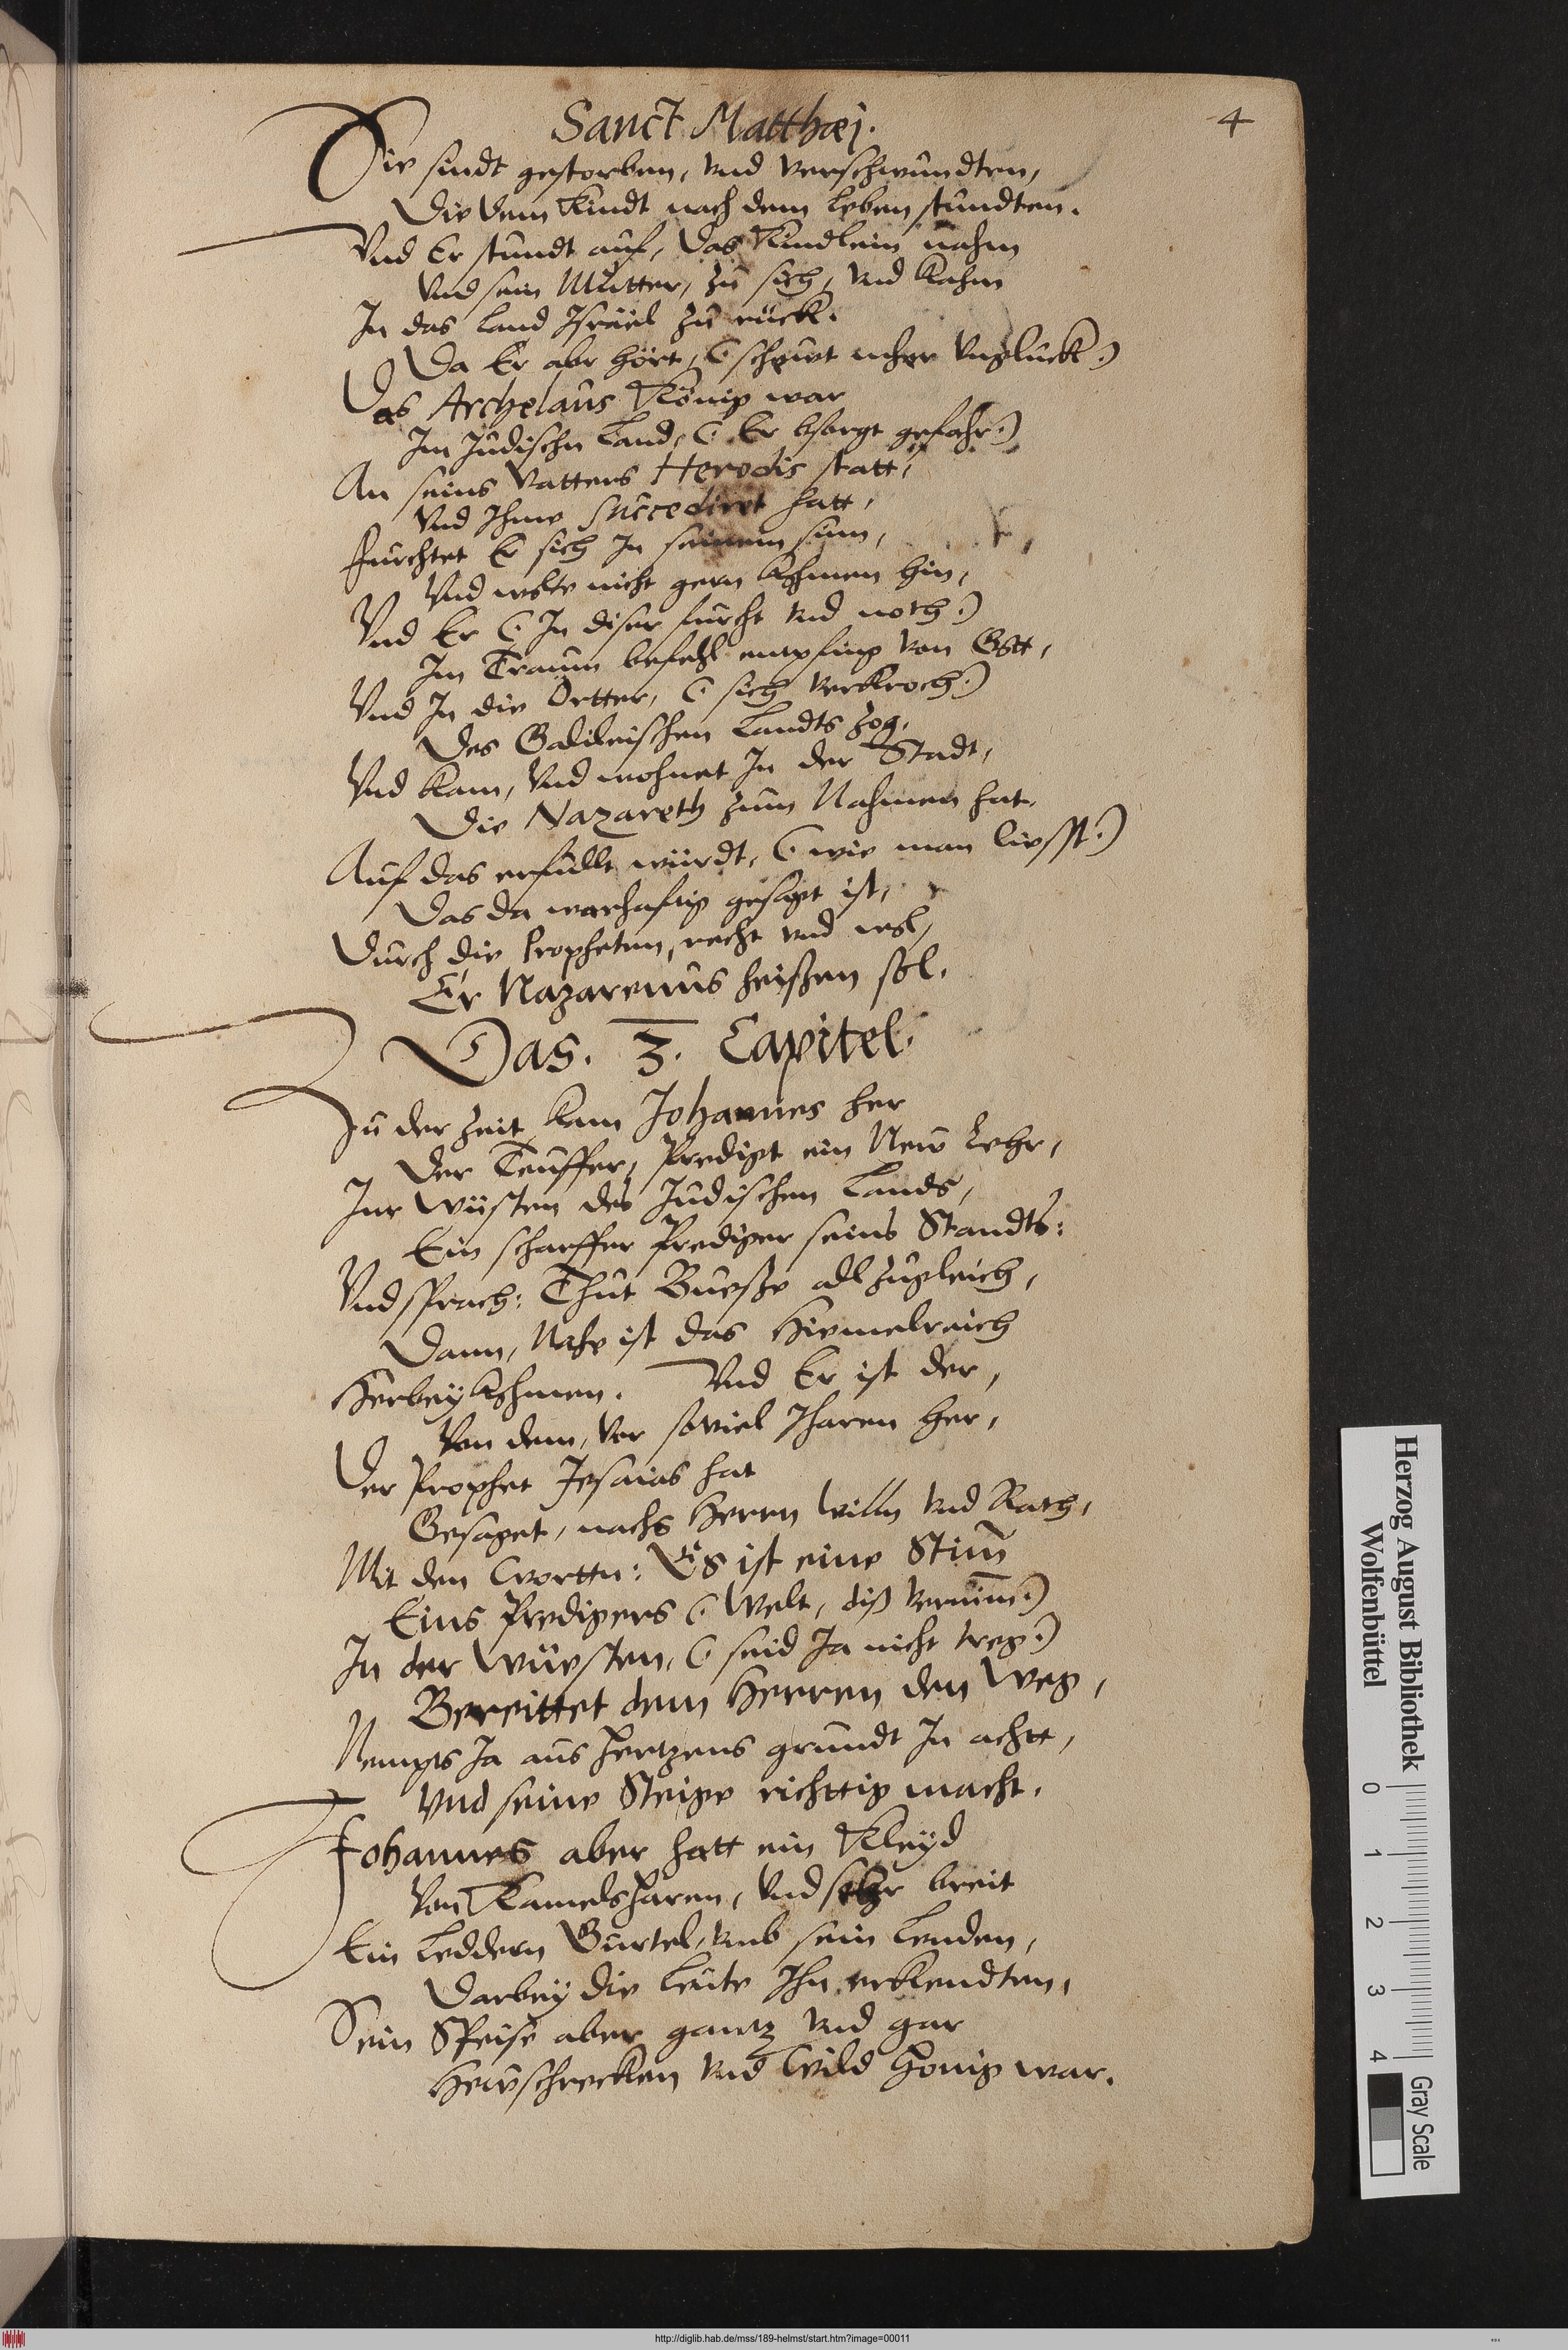 Sanct Matthæj.
4
Die sindt gestorben, vnd verschwundten,
Die dem Kindt nach dem leben stundten.
Vnd Er stundt auf, das Kindlein nahm
Vnd sein Mutter, zu sich, vnd kahm
In das land Israel zu rück.
Da Er abr hört, (: schewt mehr vnglück:)
Das Archelaus König war
Im Jüdischn Land, (: Er bsorgt gefahr:)
An seins Vatters Herodis statt,
Vnd Ihme succedirt hatt,
Furchtet Er sich In seinem sinn,
Vnd wolte nicht gern kohmen hin,
Vnd Er (: In diser furcht vnd noth:)
Im Traum befehl empfing von Gott,
Vnd In die Örtter, (: sich verkroch:)
Des Galileischen Landts zog,
Vnd kam, Vnd wohnet In der Stadt,
Die Nazareth zum Nahmen hat,
Auf das erfüllt würdt, (: wie man liesst:)
Das da warhaftig gesagt ist,
Durch die Propheten, recht vnd wol,
Er Nazarenus heißen sol.
Das. 3. Capitel.
Zu der Zeit kam Johannes her
Der Teuffer, Predigt ein New Lehr,
Inr Wüsten des Jüdischen Lands,
Ein scharffer Prediger seins Standts:
Vnd sprach: Thut Buesse all zugleich,
Dann, Nahe ist das Hiemelreich
Herbey kohmen. Vnd Er ist der,
Von dem, vor soviel Jharen her,
Der Prophet Jesaias hat
Gesaget, nachs Herrn willn vnd Rath,
Mit den Wortten: Es ist eine Stim̃
Eins Predigers (: Welt, diß vernim̃:)
In der Wüesten, (: seid Ja nicht treg:)
Bereittet dem Herren den Weg,
Nempts Ja aus hertzens grundt In achtt,
Vnd seine Steige richttig macht.
Johannes aber hatt ein Kleyd
Von Kamelsharen, Vnd sehr breit
Ein Leddern Gürtel, vmb sein Lenden,
Darbey die leute Ihn erkendten,
Sein Speise aber gantz vnd gar
Hewschrecken vnd Wild Honig war.
Herzog August Bibliothek
Wolfenbüttel
0 1 2 3 4
Gray Scale
http://diglib.hab.de/mss/189-helmst/start.htm?image=00011